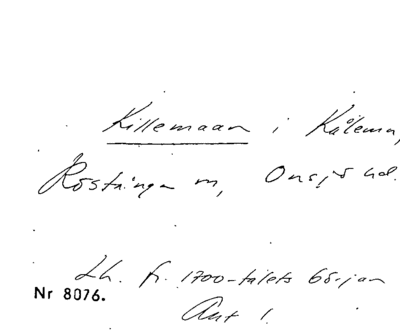 Killemaan i Kålema,
Röstånga sn, Onsjö hd.
Lh. fr. 1700-talets början
Nr 8076.
Ant 1.